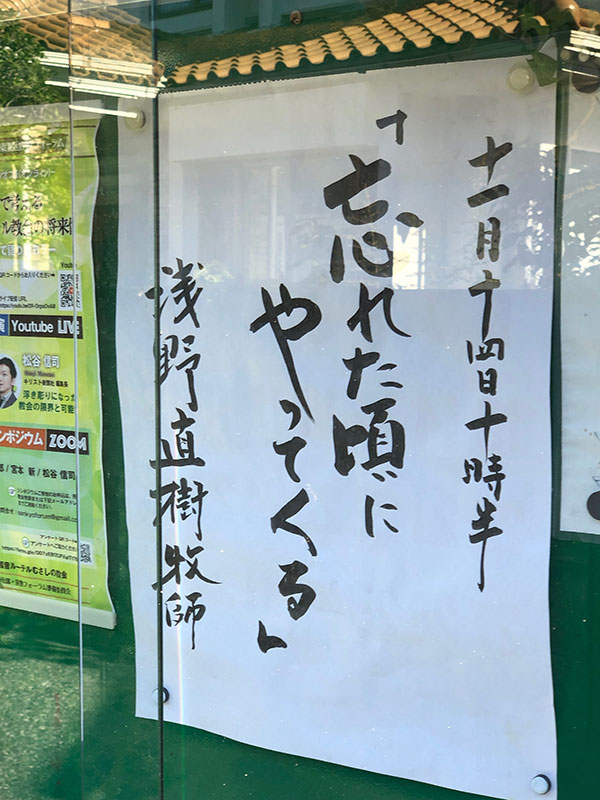 十一月十四日十時半
「忘れた頃に
やってくる」
浅野直樹牧師
Youtube LIVE
松谷 信司
キリスト新聞社 編集長
浮き彫りになった
教会の限界と可能
ンポジウム ZOOM
宮本 新/松谷 信司